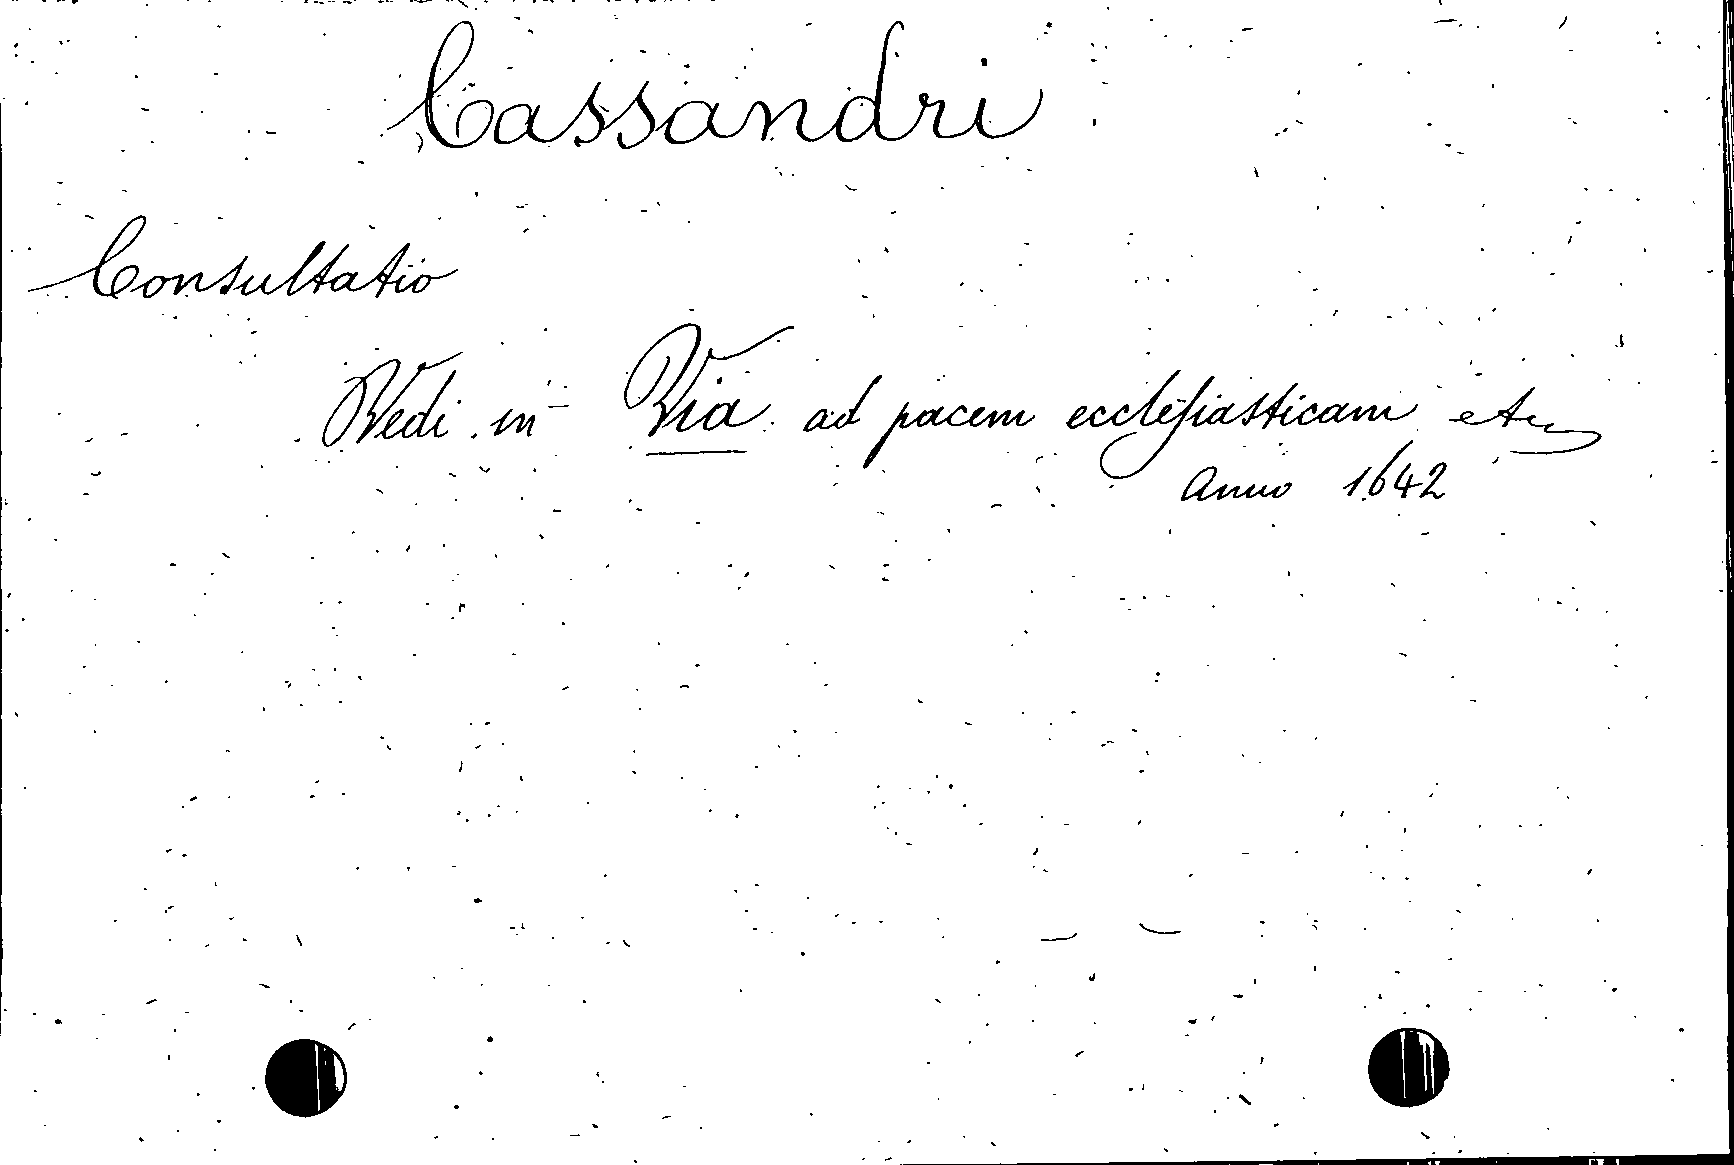 Cassandri
Consultatio
Vedi in Via ad pacem ecclesiasticam etc
Anno 1642